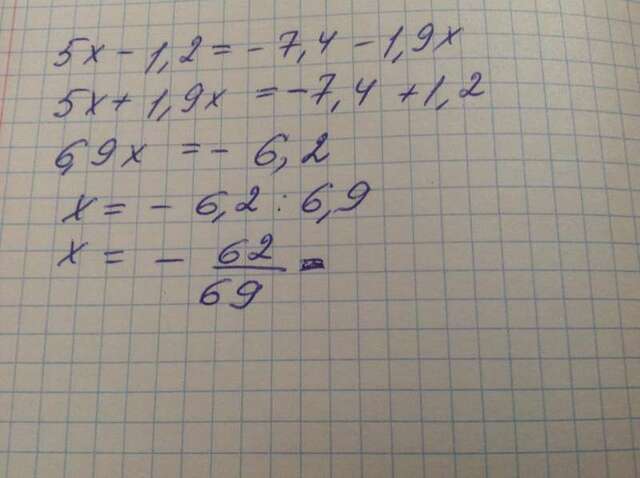 5x - 1,2 = - 7,4 - 1,9x
5x + 1,9x = - 7,4 + 1,2
6,9x = - 6,2
x = - 6,2 : 6,9
x = - 62/69 =